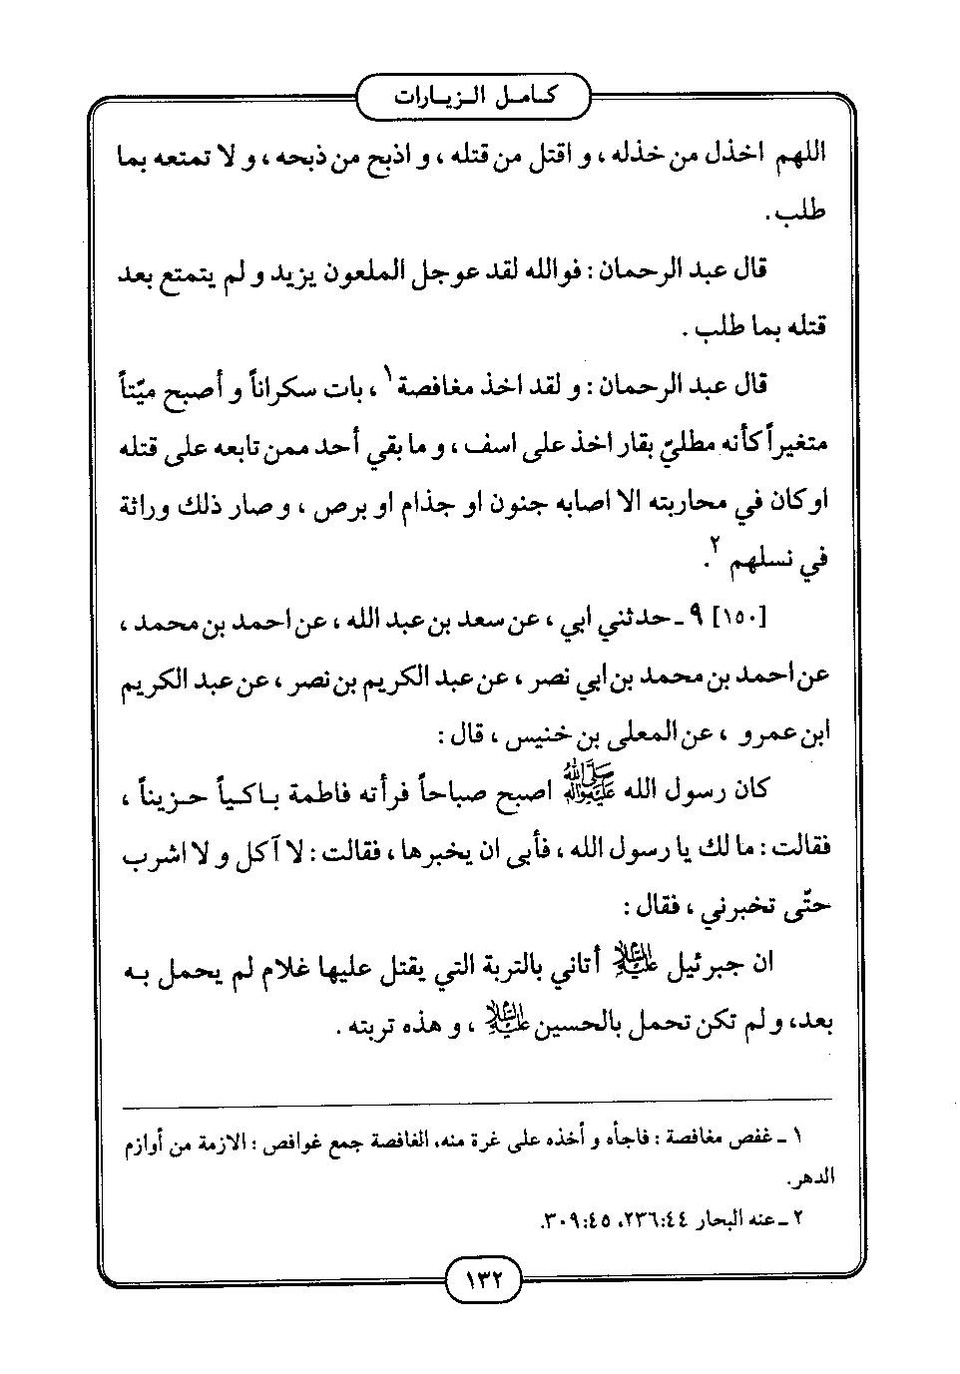 كـامـل الـزيـارات
اللهم اخذل من خذله ، و اقتل من قتله ، و اذبح من ذبحه ، و لا تمتعه بما
طلب .
قال عبد الرحمان : فوالله لقد عوجل الملعون يزيد و لم يتمتع بعد
قتله بما طلب .
قال عبد الرحمان : و لقد اخذ مغافصة ١ ، بات سكراناً و أصبح ميّتاً
متغيراً كأنه مطليّ بقار اخذ على اسف ، و ما بقي أحد ممن تابعه على قتله
او كان في محاربته الا اصابه جنون او جذام او برص ، و صار ذلك وراثة
في نسلهم ٢.
[١٥٠] ٩ ـ حدثني ابي ، عن سعد بن عبد الله ، عن احمد بن محمد ،
عن احمد بن محمد بن ابي نصر ، عن عبد الكريم بن نصر ، عن عبد الكريم
ابن عمرو ، عن المعلى بن خنيس ، قال :
كان رسول الله صلى الله عليه وآله اصبح صباحاً فرأته فاطمة بـاكـياً حـزيناً ،
فقالت : ما لك يا رسول الله ، فأبى ان يخبرها ، فقالت : لا آكل و لا اشرب
حتّى تخبرني ، فقال :
ان جبرئيل عليه السلام أتاني بالتربة التي يقتل عليها غلام لم يحمل بـه
بعد، و لم تكن تحمل بالحسين عليه السلام ، و هذه تربته .
١ ـ غفص مغافصة : فاجأه و أخذه على غرة منه، الغافصة جمع غوافص : الازمة من أوازم
الدهر.
٢ ـ عنه البحار ٤٤:٢٣٦، ٤٥:٣٠٩.
١٣٢